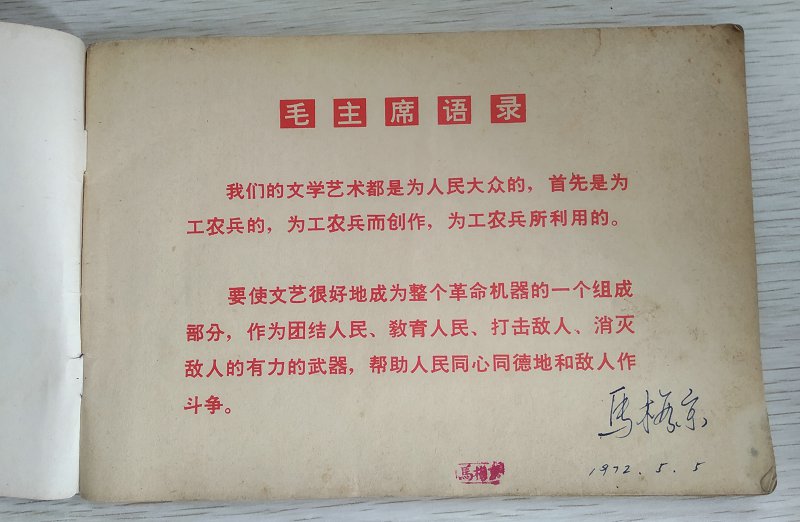 毛主席语录
我们的文学艺术都是为人民大众的，首先是为
工农兵的，为工农兵而创作，为工农兵所利用的。
要使文艺很好地成为整个革命机器的一个组成
部分，作为团结人民、教育人民、打击敌人、消灭
敌人的有力的武器，帮助人民同心同德地和敌人作
斗争。
馬梅京
1972.5.5
馬梅